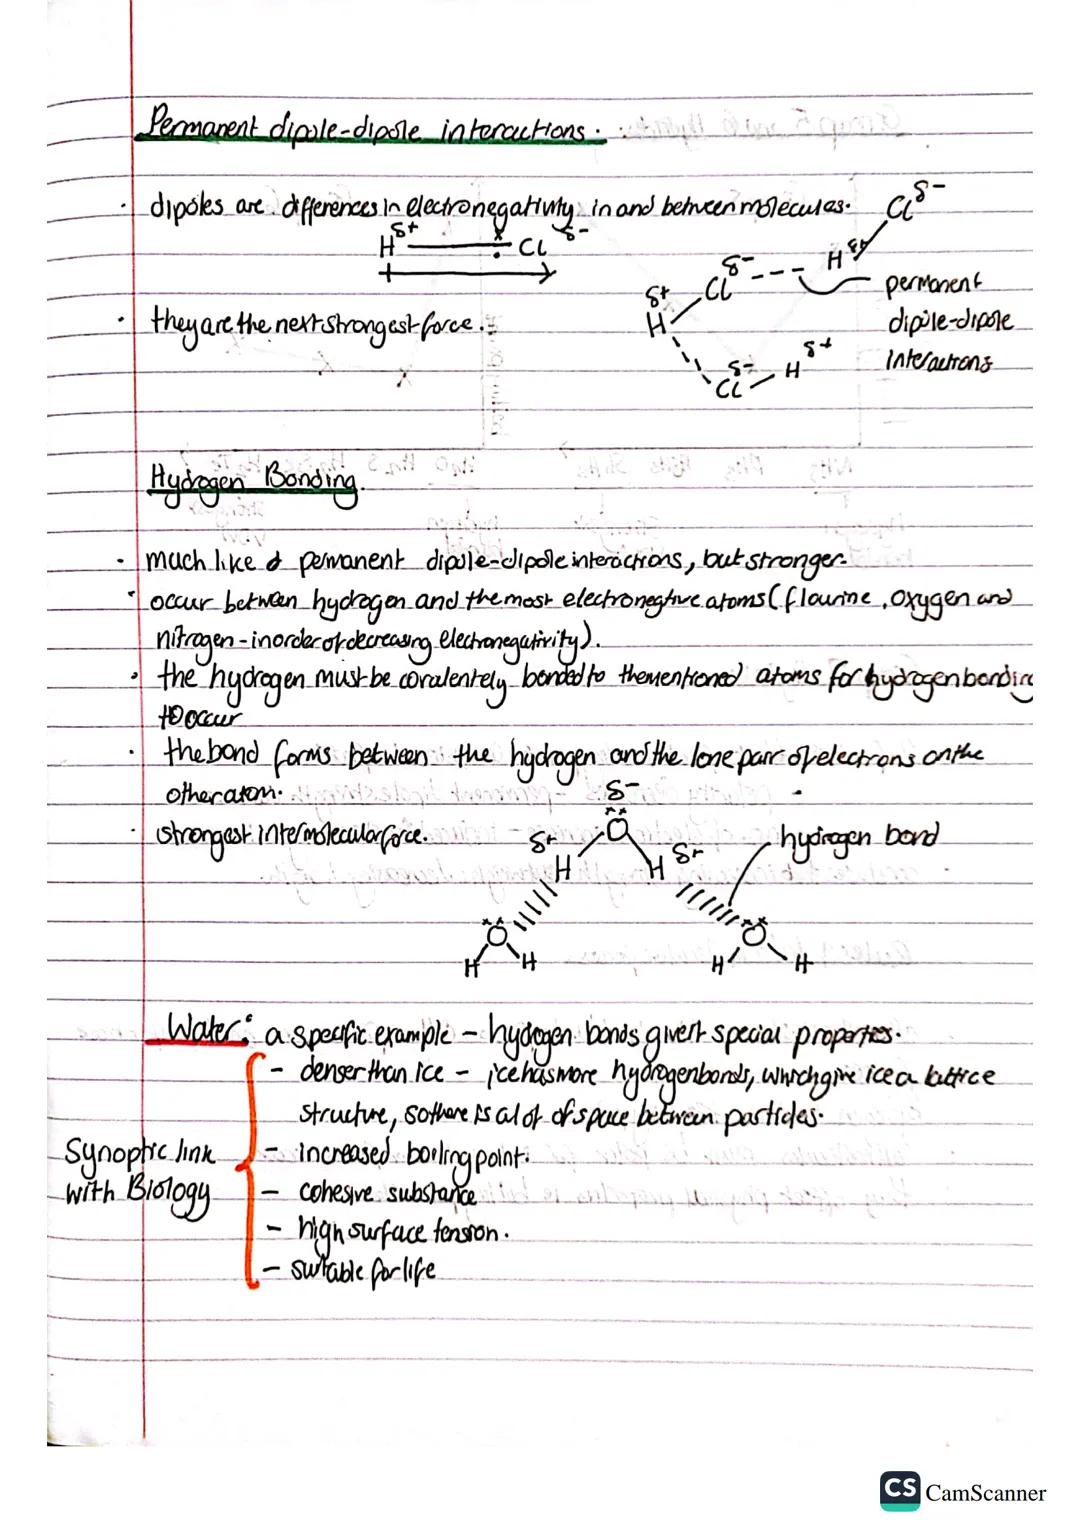 Permanent dipole-dipole interactions.
· dipoles are differences in electronegativity in and between molecules.
Cl δ-
H δ+
δ+ δ-
H Cl
δ-
Cl
permanent
dipole-dipole
interactions
δ+
H
· they are the next strongest force.
δ- δ+
Cl H
Hydrogen Bonding.
· much like permanent dipole-dipole interactions, but stronger.
· occur between hydrogen and the most electronegtive atoms (flourine, oxygen and
nitrogen - in order of decreasing electronegativity).
· the hydrogen must be covalentely bonded to the mentioned atoms for hydrogen bonding
to occur
· the bond forms between the hydrogen and the lone pair of electrons on the
other atom.
· strongest intermolecular force.
δ-
O
δ+ δ+
H H
hydrogen bond
O O
H H H H
Water: a specific example - hydrogen bonds give it special properties.
- denser than ice - ice has more hydrogen bonds, which give ice a lattice
structure, so there is a lot of space between particles.
Synoptic link
with Biology
- increased boiling point.
- cohesive substance
- high surface tension.
- suitable for life
CS CamScanner